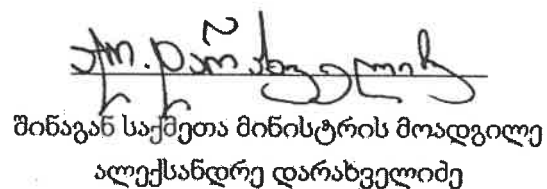 შინაგან საქმეთა მინისტრის მოადგილე
ალექსანდრე დარახველიძე